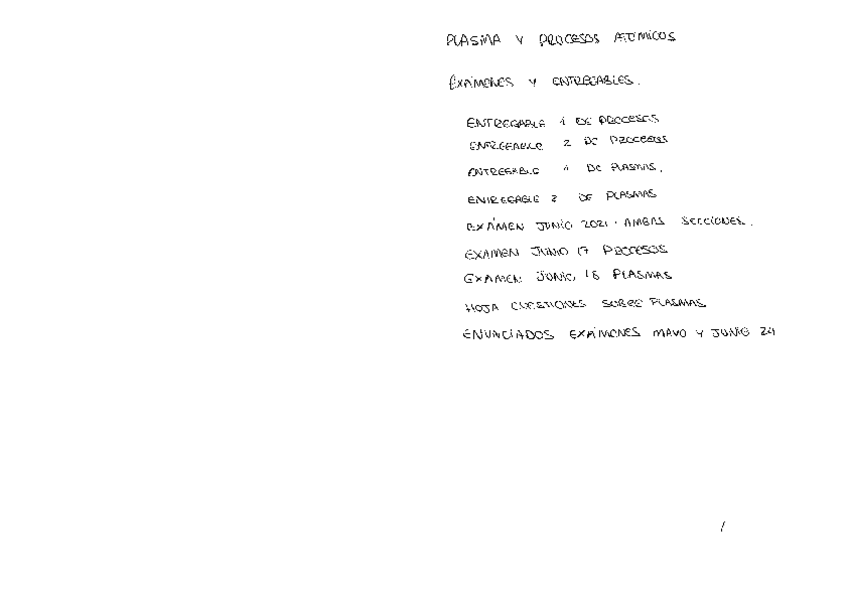 PLASMA Y PROCESOS ATÓMICOS
EXÁMENES Y ENTREGABLES.
ENTREGABLE 1 DE PROCESOS
ENTREGABLE 2 DE PROCESOS
ENTREGABLE 1 DE PLASMAS.
ENTREGABLE 2 DE PLASMAS
EXÁMEN JUNIO 2021 · AMBAS SECCIONES.
EXAMEN JUNIO 17 PROCESOS
EXAMEN JUNIO 18 PLASMAS
HOJA CUESTIONES SOBRE PLASMAS
ENUNCIADOS EXÁMENES MAYO Y JUNIO 24